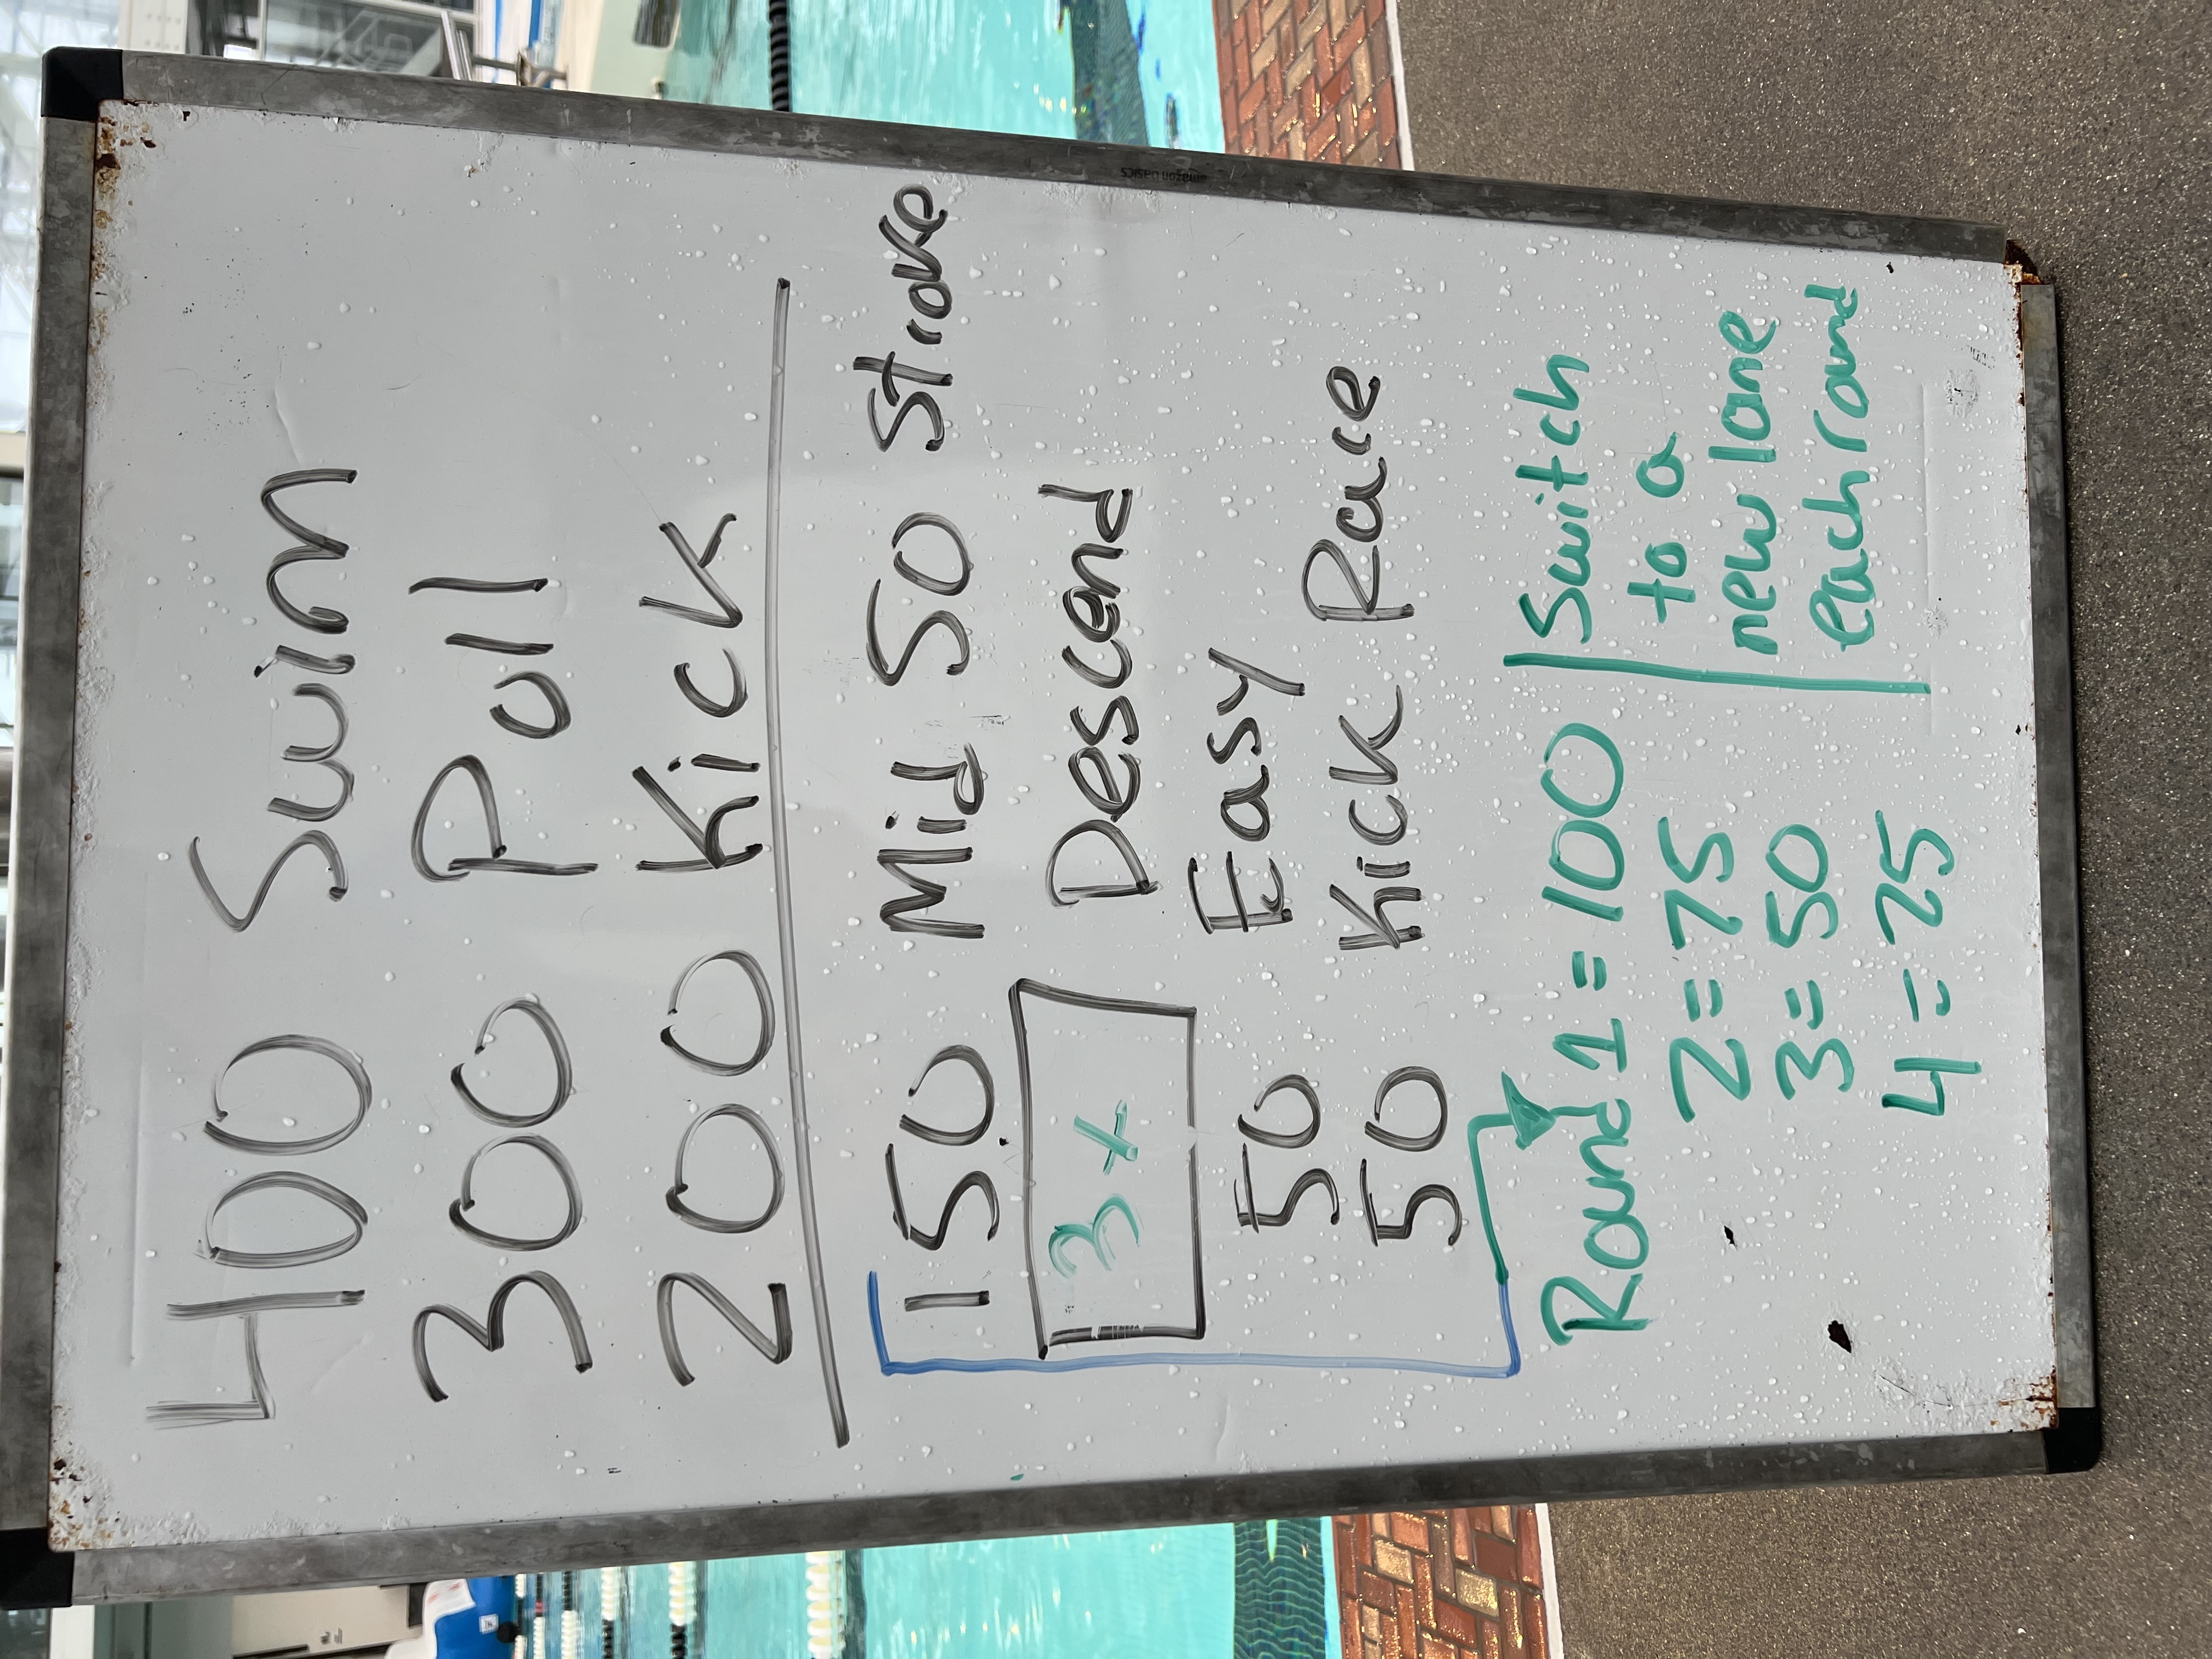 400 Swim
300 Pull
200 Kick
150 Mid 50 Stroke
3x Descend
50 Easy
50 Kick Race
Round 1 = 100
2 = 75
3 = 50
4 = 25
Switch
to a
new lane
each round
amazon basics